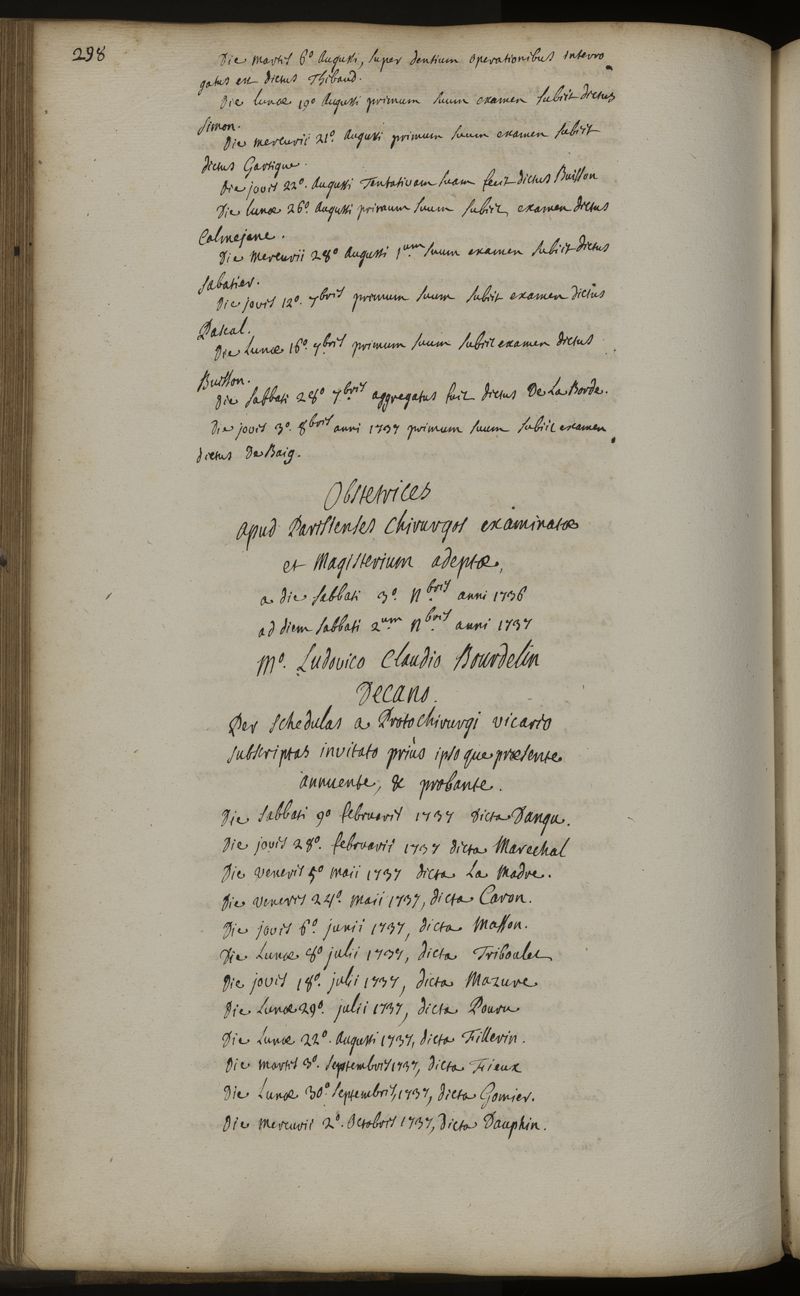 298
Die martis 6º Augusti, super dentium operationibus interro
gatus est dictus Thibaud.
Die lunæ 19º Augusti primum suum examen subiit dictus
Simon.
Die mercurii 21º. Augusti primum suum examen subiit
dictus Gartique.
Die jovis 22º. Augusti Tentativam suam fecit dictus Buisson
Die lunæ 26º. Augusti primum suum subiit examen dictus
Calmejane.
Die mercurii 28º Augusti 1um suum examen subiit dictus
Sabatier.
Die jovis 12º. 7bris primum suum subiit examen dictus
Pascal.
Die Lunæ 16º. 7bris primum suum subiit examen dictus
Buisson.
Die sabbati 28º 7bris aggregatus fuit dictus De La Borde.
Die jovis 3º. 8bris anni 1737 primum suum subiit examen
dictus De Baig.
Obstetrices
apud Parisienses Chirurgos examinatæ
et Magisterium adeptæ,
a die sabbati 3º. Nbris anni 1736
ad diem sabbati 2um Nbris anni 1737
Mº. Ludovico Claudio Bourdelin
Decano.
Per schedulas a Protochirurgi vicario
subscriptas invitato priùs ipsoque præsente
annuente, & probante.
Die sabbati 9º februarii 1737 dicta Dangu.
Die jovis 28º. februarii 1737 dicta Marechal
Die veneris 5º maii 1737 dicta La Madre.
Die veneris 24º. maii 1737, dicta Caron.
Die jovis 6º. junii 1737, dicta Masson.
Die Lunæ 8º julii 1737, dicta Triboulet
Die jovis 18º. julii 1737, dicta Mazure
Die Lunæ 29º. julii 1737, dicta Pouru
Die Lunæ 22º. Augusti 1737, dicta Fillevin.
Die martis 3º. Septembris 1737, dicta Fieux
Die Lunæ 30º Septembris, 1737, dicta Gomier.
Die mercurii 2º. Octobris 1737, dicta Dauphin.